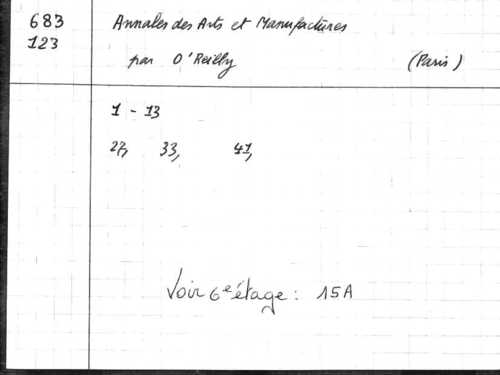 683
123
Annales des Arts et Manufactures
par O'Reilly (Paris)
1 - 13
27, 33, 41,
Voir 6e étage : 15A